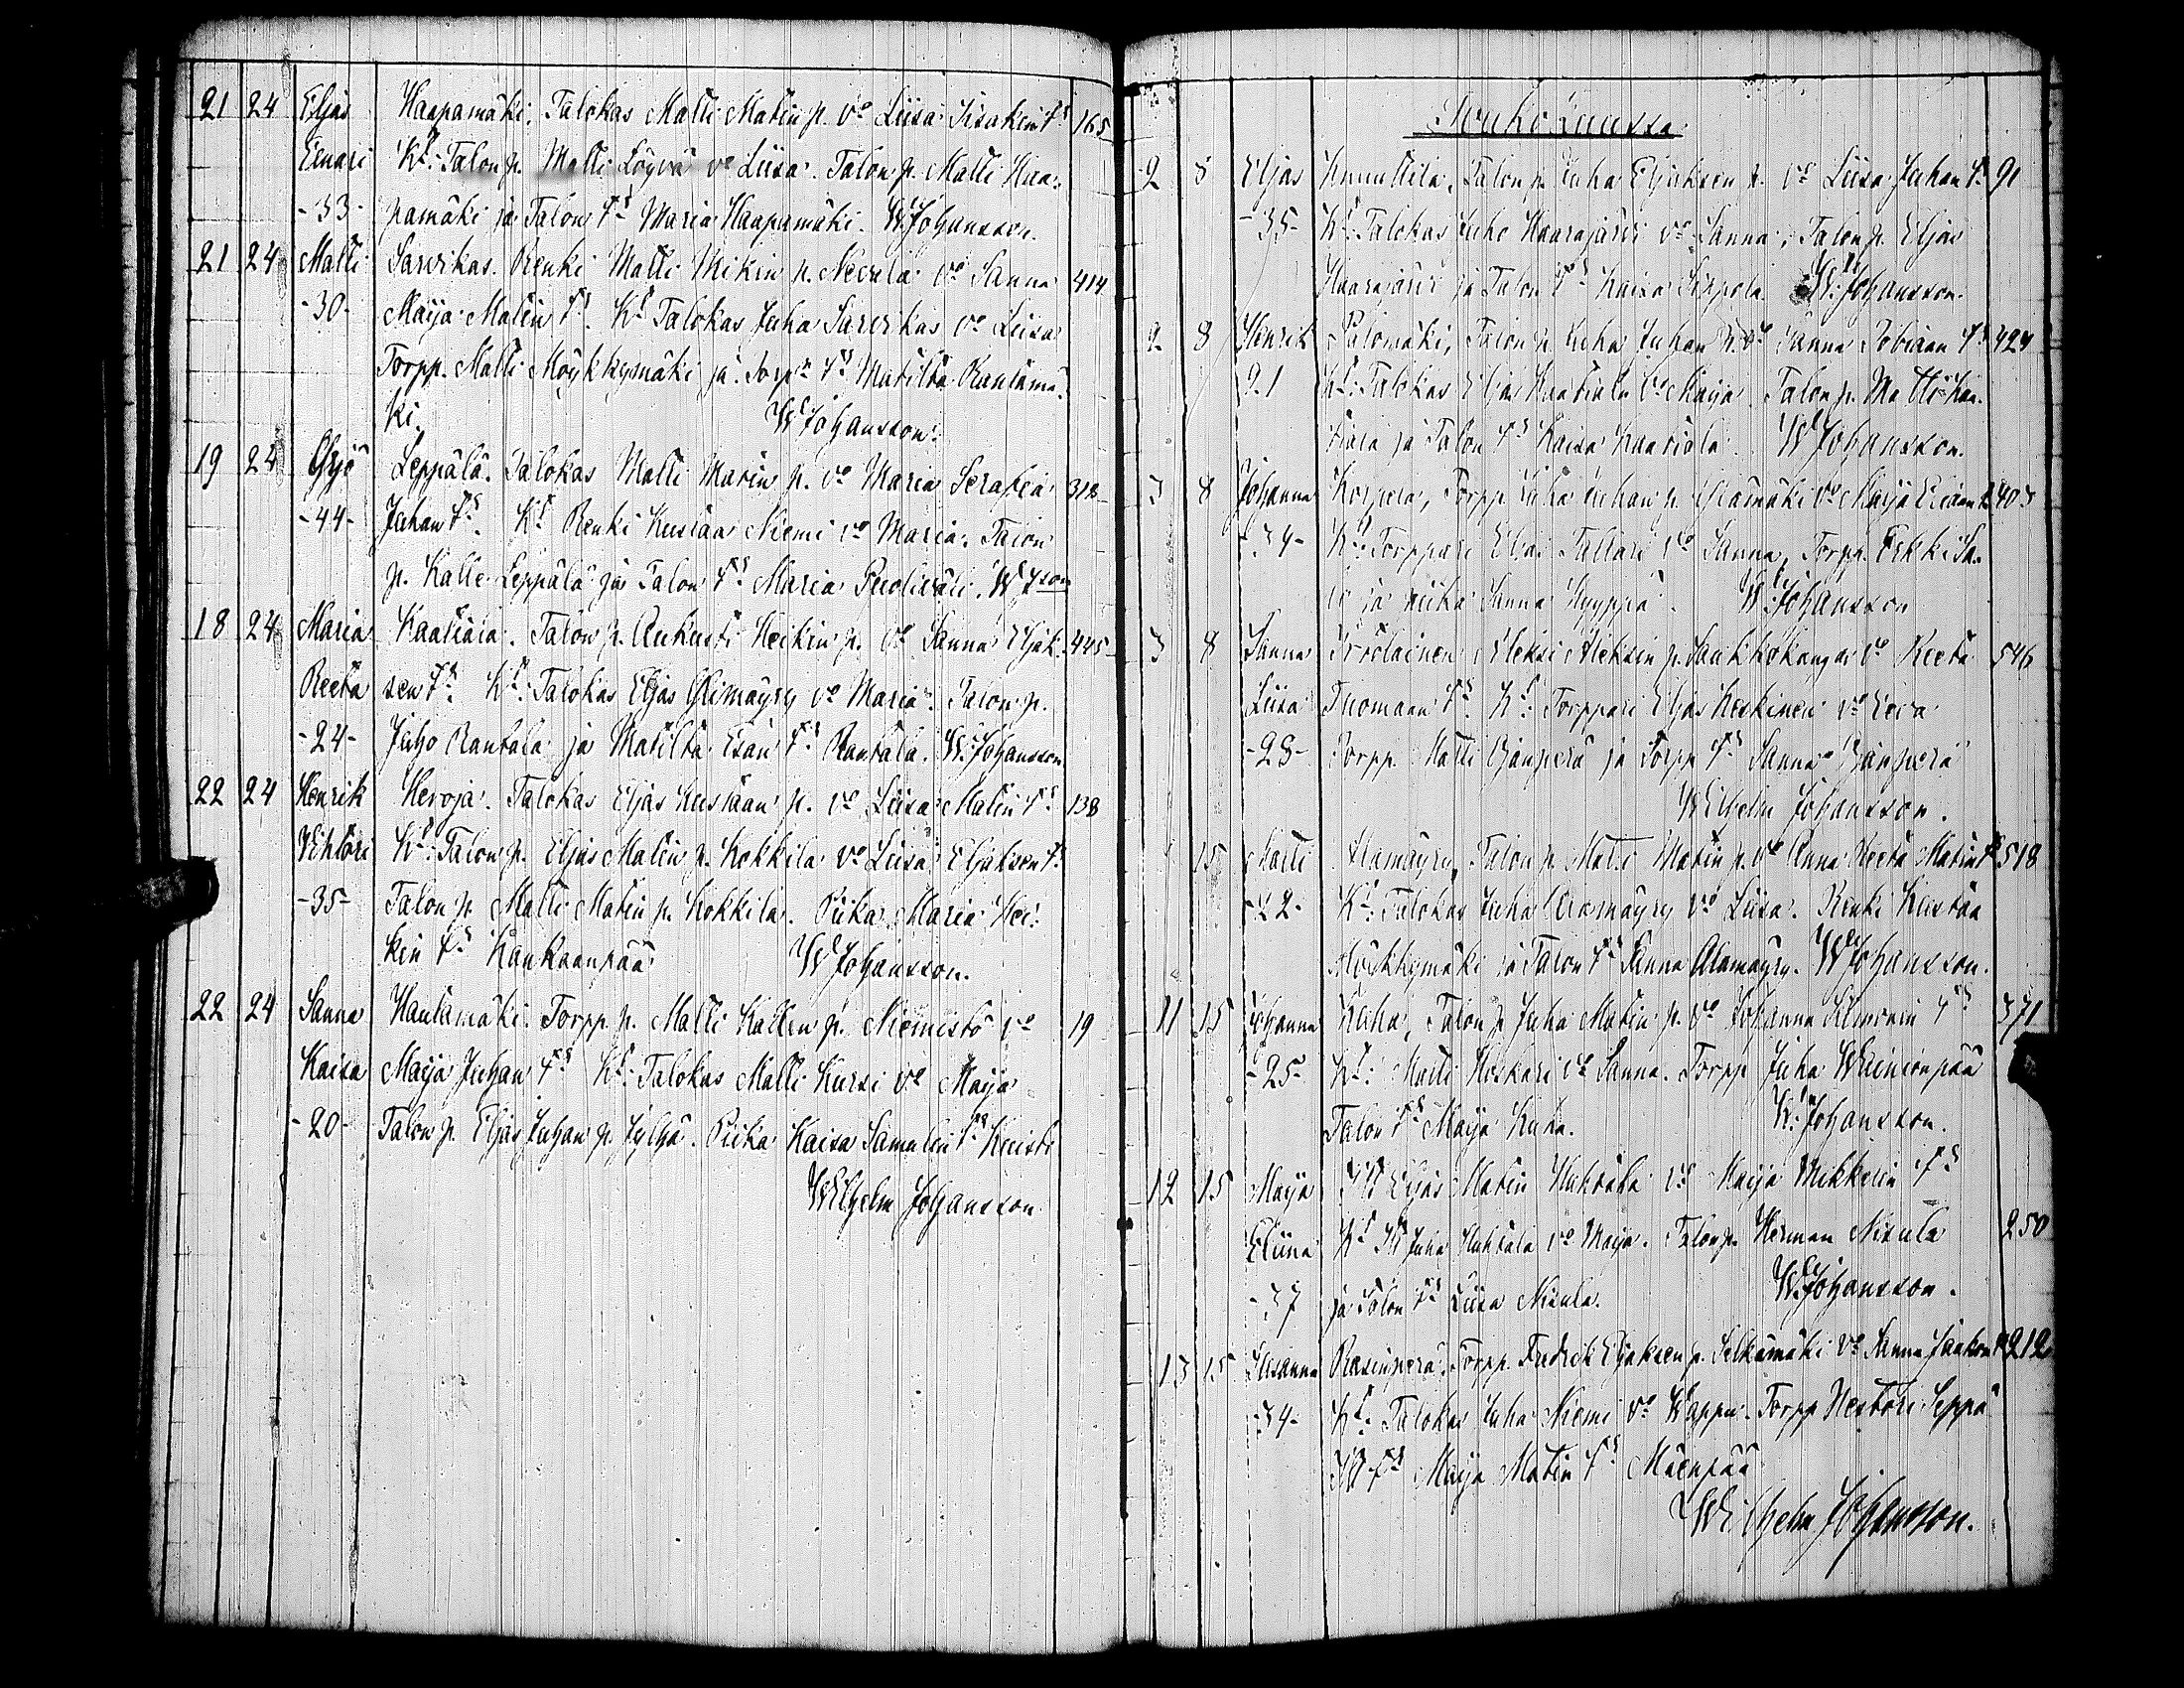 21 24 Eljas Haapamäki, Talokas Matti Matin p. vo Liisa Iisakin ts 165
Eenari Kt: Talon p. Matti Löyvä vo Liisa. Talon p. Matti Haa-
-33- pamäki ja Talon ts Maria Haapamäki. W. Johansson.
21 24 Matti Sarvikas. Renki Matti Mikin p. Nevala vo Sanna 414
-30- Maija Matin ts. Kt Talokas Juha Sarvikas vo Liisa
Torpp. Matti Möykkymäki ja Torpn ts Matilta Rantamä-
ki. W Johansson.
19 24 Yrjö Leppälä. Talokas Matti Matin p. vo Maria Serafia 312
-44- Juhan ts. Kt Renki Kustaa Niemi vo Maria. Talon
p. Kalle Leppälä ja Talon ts Maria Puoliväli. W Json
18 24 Maria Kaatiala. Talon p. Aukusti Heikin p. vo Sanna Eljak- 445
Reeta sen ts. Kt: Talokas Eljas Ylimäyry vo Maria. Talon p.
-24- Juho Rantala ja Matilta Esan ts Rantala. W. Johansson
22 24 Henrik Heroja. Talokas Eljas Kustaan p. vo Liisa Matin ts 138
Vihtori Kt: Talon p. Eljas Matin p. Kokkila vo Liisa Eljaksen ts.
-35- Talon p. Matti Matin p. Kokkila. Piika Maria Hei-
kin ts Kankaanpää W Johansson.
22 24 Sanna Hautamäki. Torpp. p. Matti Kallen p. Niemistö vo 19
Kaisa Maija Juhan ts Kt: Talokas Matti Kursi vo Maija
-20- Talon p. Eljas Juhan p. Jylhä. Piika Kaisa Samulin ts Kuisti
Wilhelm Johansson
Toukokuussa
2 8 Eljas Knuuttila, Talon p. Juha Eljaksen p. vo Liisa Juhan ts. 91
-35- Kt: Talokas Juho Haarajärvi vo Sanna, Talon p. Eljas
Haarajärvi ja Talon ts Kaisa Seppola W: Johansson.
2 8 Henrik Palomäki, Talon p. Juha Juhan p. vo Sanna Tobiaan ts 424
21 Kt: Talokas Eljas Kaatiala vo Maija Talon p. Matti Kaa-
tiala ja Talon ts Kaisa Kaatiala. W Johansson.
3 8 Johanna Korpela, Torpp. Juha Juhan p. vo Maija 403
-34- Kt: Torppari Eljas Tallari vo Sanna, Torpp. Erkki Sa-
ja piika Sanna Hyyppä. W: Johansson
3 8 Sanna Aleksi Aleksin p. Saukkokangas vo Reeta 546
Liisa Tuomaan ts. Kt: Torppari Eljas Keskinen vo Eeva
-28- Torpp. Matti ja Torpp ts Sanna
Wilhelm Johansson.
15 Matti Alamäyry, Talon p. Matti Matin p. vo Anna Reeta Matin ts 518
-22- Kt: Talokas Juha Alamäyry vo Liisa. Renki Kustaa
Möykkymäki ja Talon ts Sanna Alamäyry. W Johansson.
11 15 Johanna Kuha, Talon p Juha Matin p. vo Johanna ts 371
-25- Kt: Matti Koskari vo Sanna. Torpp Juha Wainionpää
Talon ts Maija Kuha. W: Johansson.
12 15 Maija Eljas Matin Huhtala vo Maija Mikkelin ts
Eliina Kt Juha Huhtala vo Maija. Talon p. Herman Nisula 250
-37 ja Talon ts Liisa Nisula. W. Johansson.
13 15 Susanna Rasinperä, Torpp. Fredrik Eljaksen p. Selkämäki vo Sanna Jaakon ts 212
-34- Kt: Talokas Juha Niemi vo Wappu. Torpp Nestori Seppä
ts Maija Matin ts Mäenpää
Wilhelm Johansson.